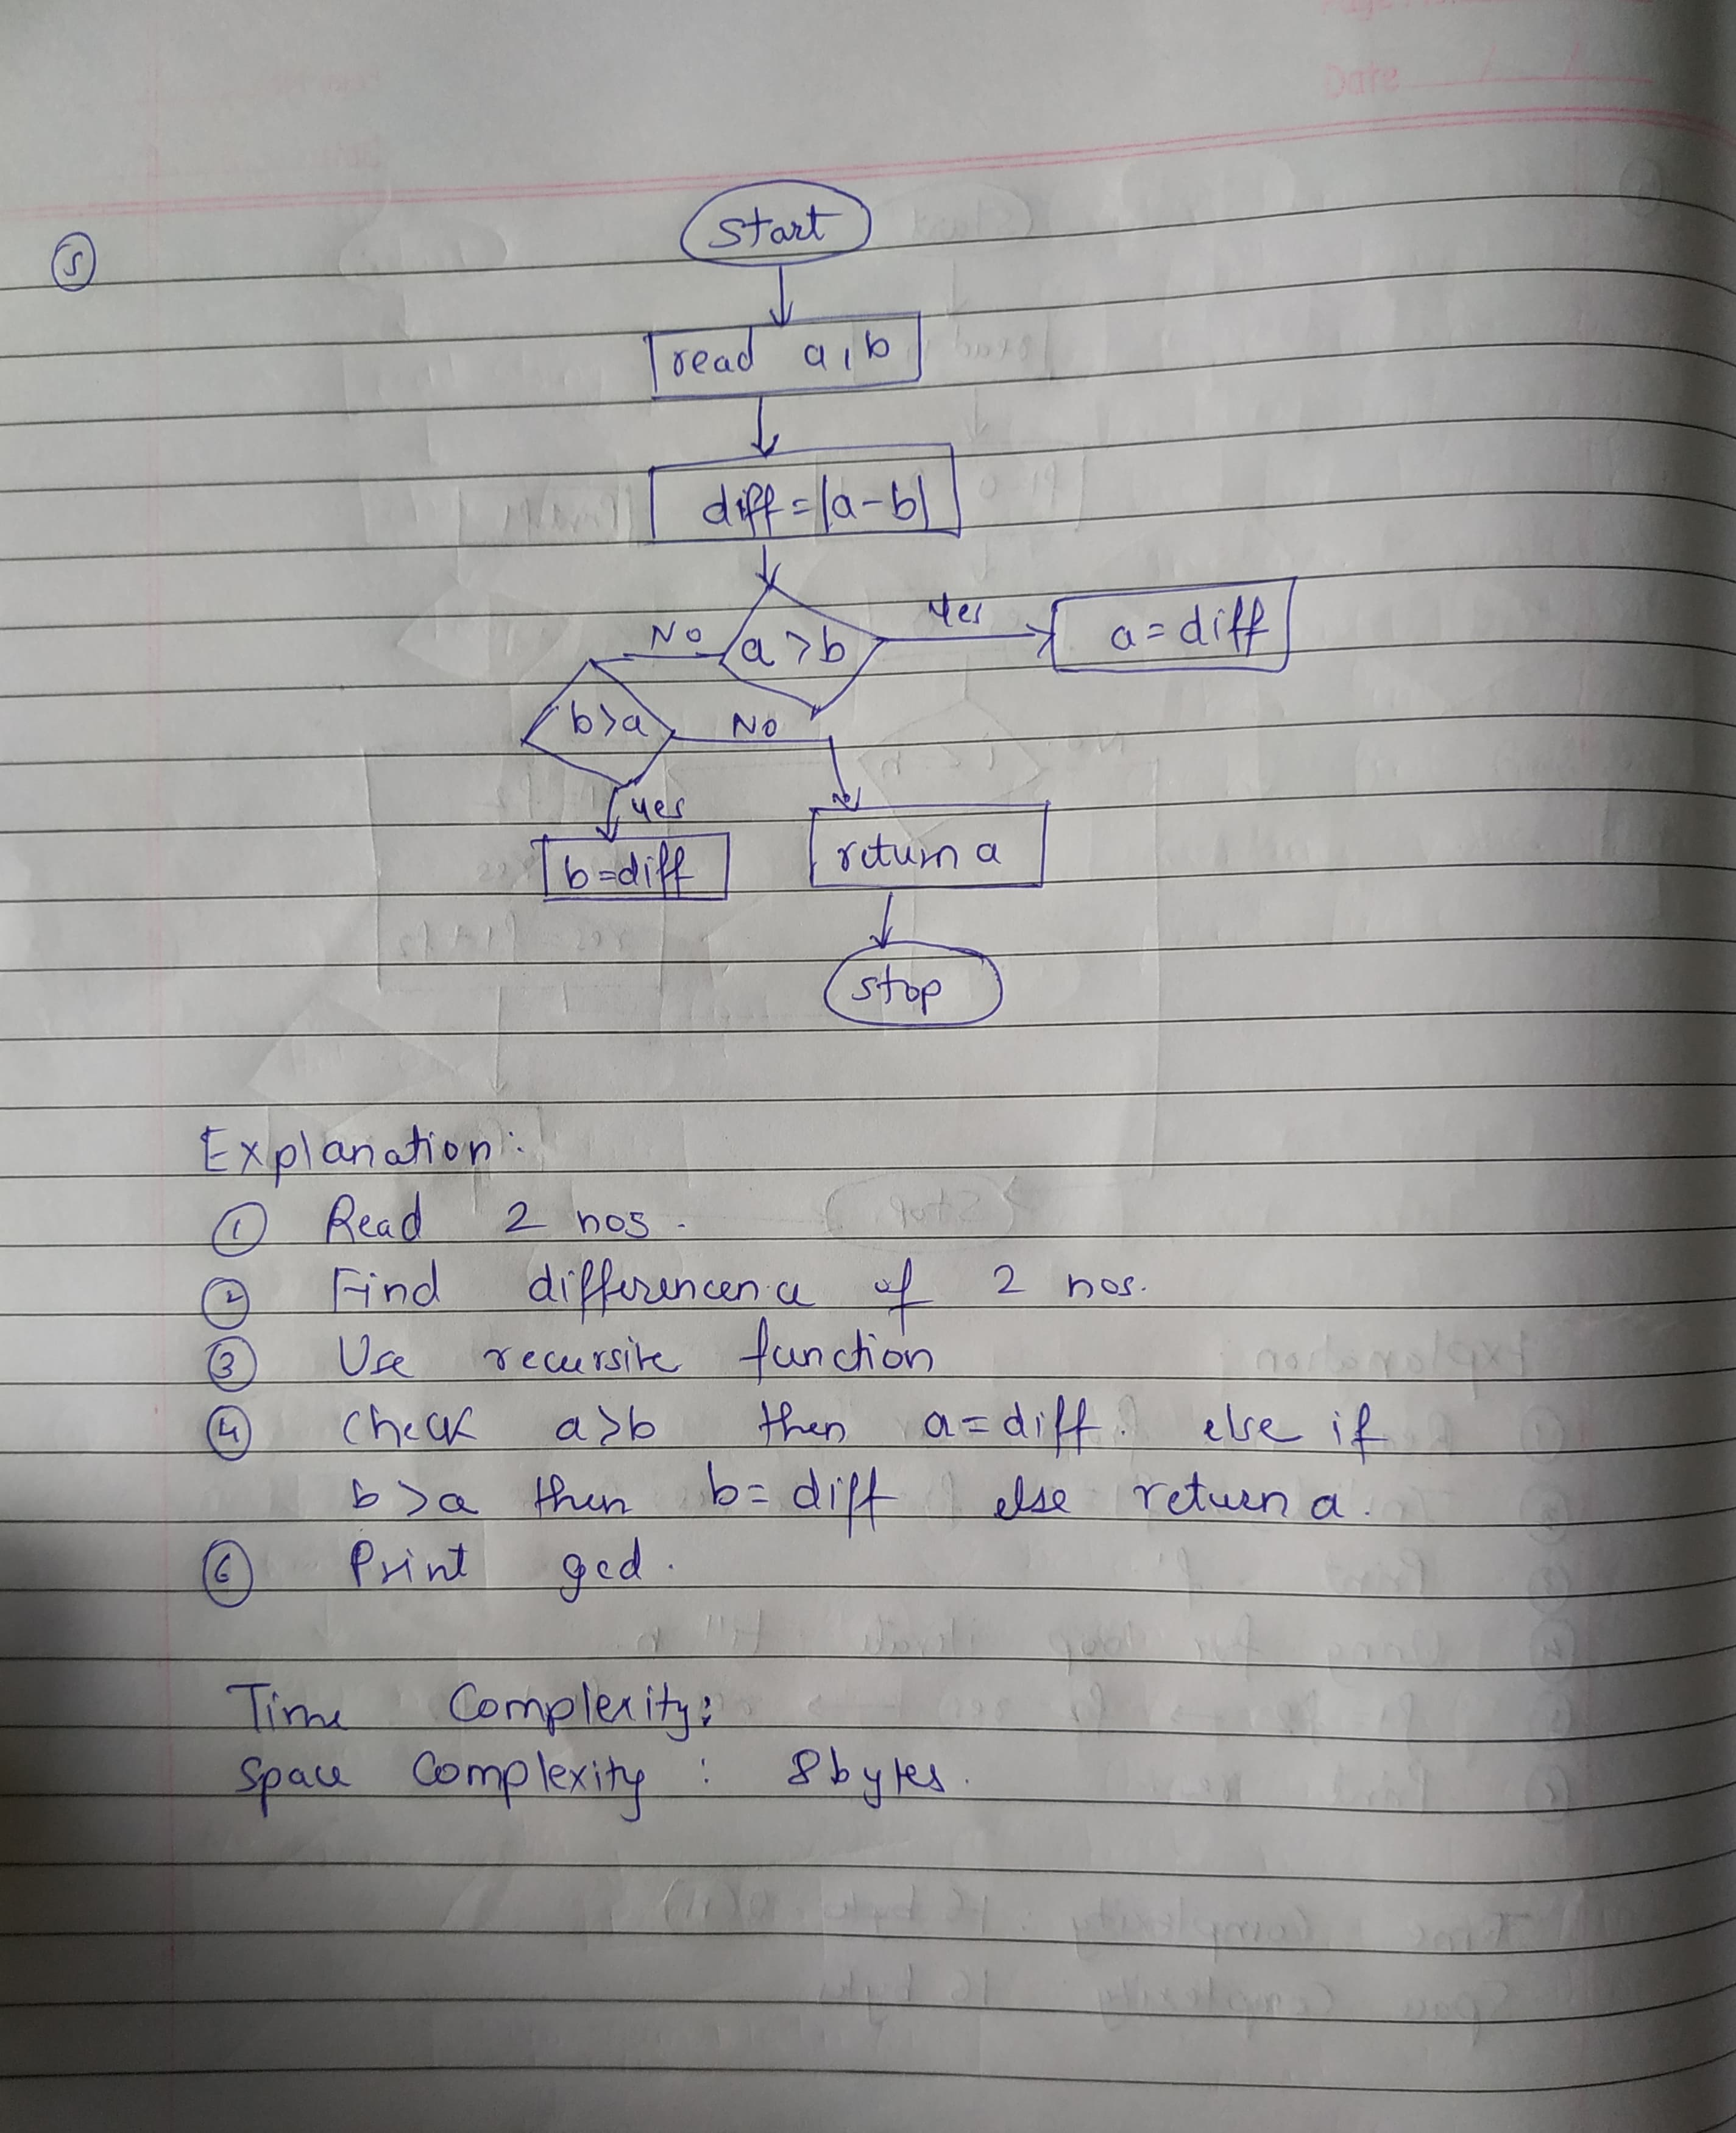 Date
5
Start
read a, b
diff = |a-b|
No a > b Yes a = diff
b > a No
yes
b = diff return a
stop
Explanation:
1 Read 2 nos.
2 Find differencence of 2 nos.
3 Use recursive function
4 Check a>b then a = diff. else if
b > a then b = diff else return a.
6 Print gcd.
Time Complexity:
Space Complexity : 8 bytes.